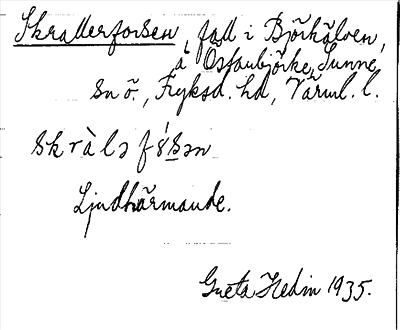 Skrallerforsen, fall i Björkälven,
å Östanbjörke, Sunne
sn ö., Fryksd. hd, Värml. l.
skràlə fo̍sən
Ljudhärmande.
Greta Hedin 1935.